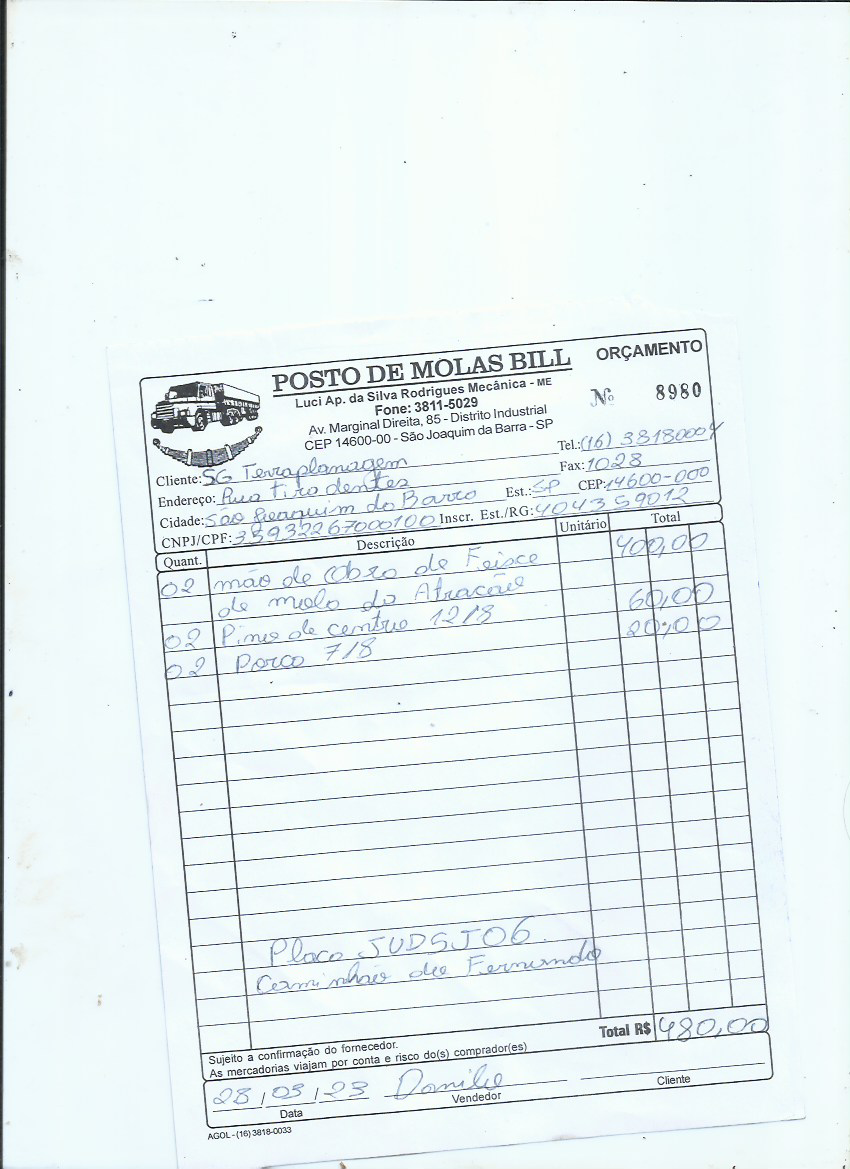 POSTO DE MOLAS BILL
ORÇAMENTO
Luci Ap. da Silva Rodrigues Mecânica - ME
Fone: 3811-5029
Nº 8980
Av. Marginal Direita, 85 - Distrito Industrial
CEP 14600-00 - São Joaquim da Barra - SP
Tel.:(16) 3818000
Cliente: SG Terraplanagem
Fax: 1028
Endereço: Rua Tiradentes
Est.: SP CEP: 14600-000
Cidade: São Joaquim da Barra
CNPJ/CPF: 35932267000100 Inscr. Est./RG: 404359012
Quant. Descrição Unitário Total
02 mão de Obra de Feixe 400,00
de mola da Atracão
02 Pino de centro 12/8 60,00
02 Porca 7/8 20,00
Placa JUD5J06
Caminhão de Fernando
Total R$ 480,00
Sujeito a confirmação do fornecedor.
As mercadorias viajam por conta e risco do(s) comprador(es)
28/03/23 Danilo
Data Vendedor Cliente
AGOL - (16) 3818-0033